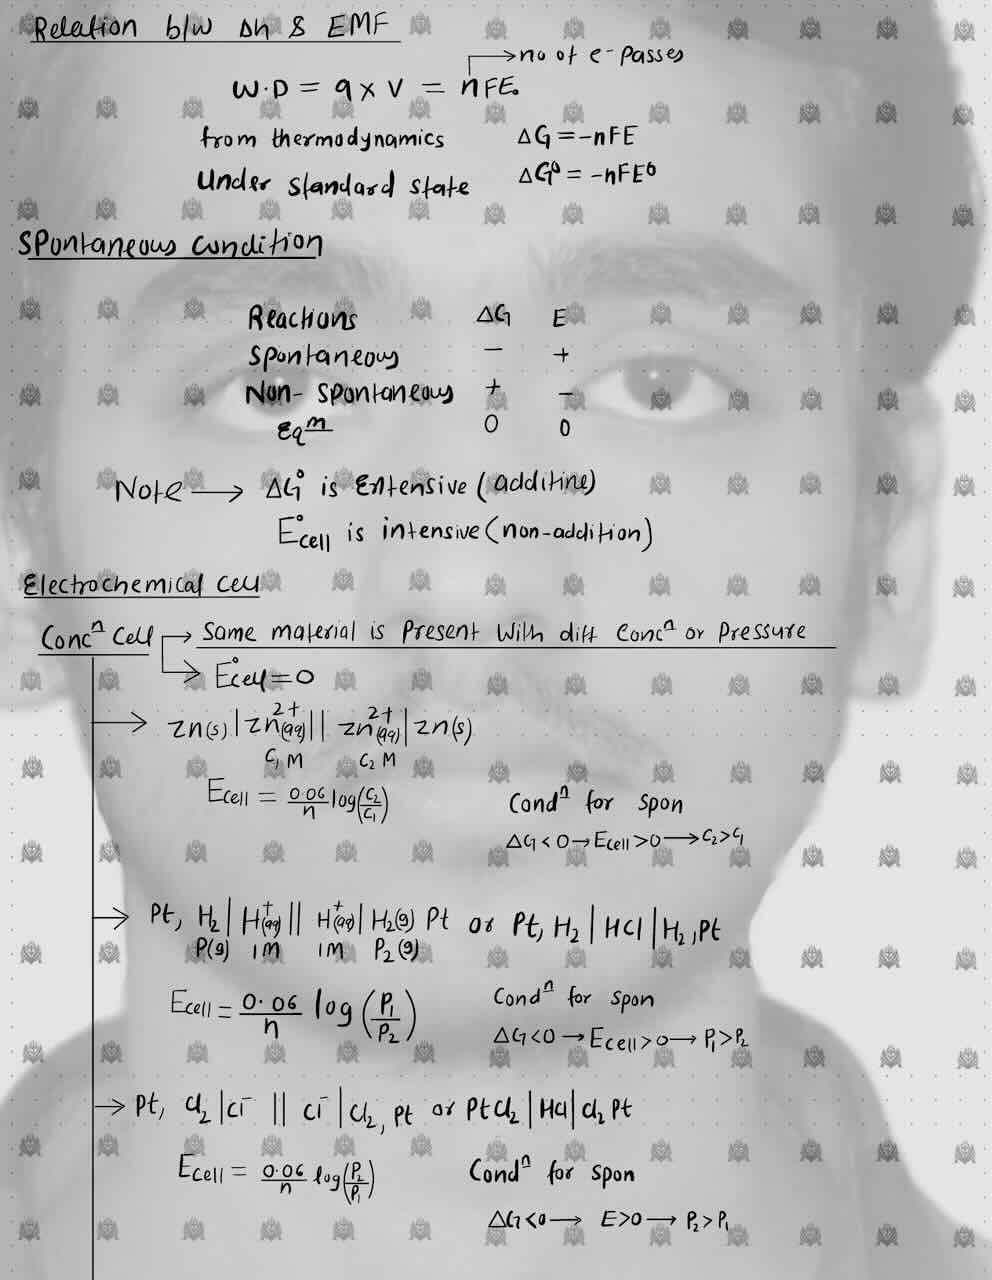 Relation b/w Δn & EMF
no of e- passes
W.D = q x V = nFE.
from thermodynamics ΔG = -nFE
Under standard state ΔG° = -nFE°
Spontaneous condition
Reactions ΔG E
Spontaneous - +
Non-spontaneous + -
Eqm 0 0
Note → ΔG° is Extensive (additine)
E°cell is intensive (non-addition)
Electrochemical cell
Concn cell → Same material is Present with diff Concn or Pressure
→ E°cell = 0
→ Zn(s) | Zn2+(aq) || Zn2+(aq) | Zn(s)
C1 M C2 M
Ecell = 0.06/n log(C2/C1) Condn for spon
ΔG < 0 → Ecell > 0 → C2 > C1
→ Pt, H2 | H+(aq) || H+(aq) | H2(g) Pt or Pt, H2 | HCl | H2, Pt
P(g) 1M 1M P2(g)
Ecell = 0.06/n log(P1/P2) Condn for spon
ΔG < 0 → Ecell > 0 → P1 > P2
→ Pt, Cl2 | Cl- || Cl- | Cl2, Pt or Pt Cl2 | HCl | Cl2 Pt
Ecell = 0.06/n log(P2/P1) Condn for spon
ΔG < 0 → E > 0 → P2 > P1